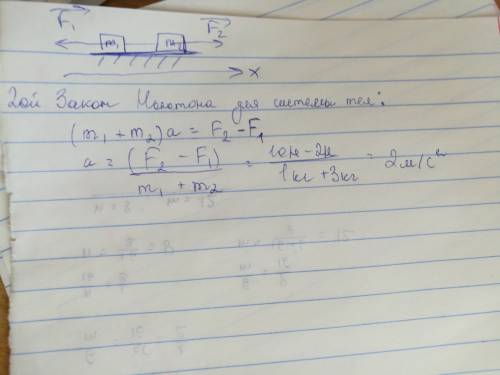 F₁ m₁ m₂ F₂
x
2ой Закон Ньютона для системы тел:
(m₁ + m₂)a = F₂ - F₁
a = (F₂ - F₁) / (m₁ + m₂) = (10н - 2н) / (1кг + 3кг) = 2м/с²